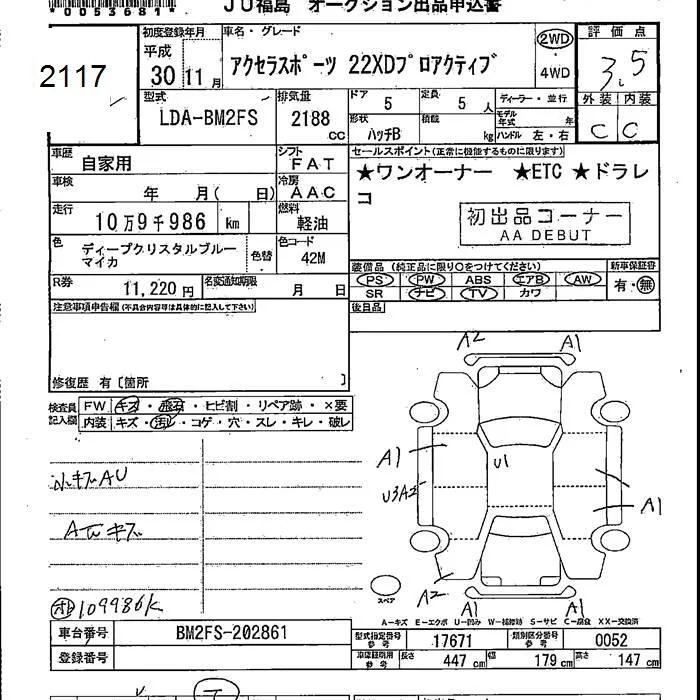 *0053681*
JU福島 オークション出品申込書
2117
初度登録年月
平成
30 11 月
車名・グレード
アクセラスポーツ 22XDプロアクティブ
2WD
4WD
評価点
3.5
型式
LDA-BM2FS
排気量
2188 cc
ドア 5
定員 5 人
形状 ハッチB
積載 kg
ディーラー・並行
モデル年式 年
ハンドル 左・右
外装 内装
C C
車歴
自家用
シフト
FAT
車検
年 月( 日)
冷房
AAC
走行
10万9千986 km
燃料
軽油
色
ディープクリスタルブルーマイカ
色替
色コード
42M
セールスポイント(正常に機能するものに限ります)
★ワンオーナー ★ETC ★ドラレコ
初出品コーナー
AA DEBUT
R券
11,220 円
名変通知期限
月 日
装備品 (純正品に限り○をつけてください)
PS PW ABS エアB AW
SR ナビ TV カワ
新車保証書
有・無
後日品
注意事項申告欄(不具合内容等は具体的に記入して下さい)
修復歴 有〔箇所 〕
検査員記入欄
FW キズ・飛石・ヒビ割・リペア跡・×要
内装 キズ・汚レ・コゲ・穴・スレ・キレ・破レ
小キズAU
Aワレ キズ
109986K
A2 A1
A1
U1
U3A2
A1
A2
A1 A1
スペア
A-キズ E-エクボ U-凹み W-補修跡 S-サビ C-腐食 XX-交換済
車台番号
BM2FS-202861
登録番号
型式指定番号 参考
17671
類別区分番号 参考
0052
車庫証明用 参考
長さ 447 cm
幅 179 cm
高さ 147 cm